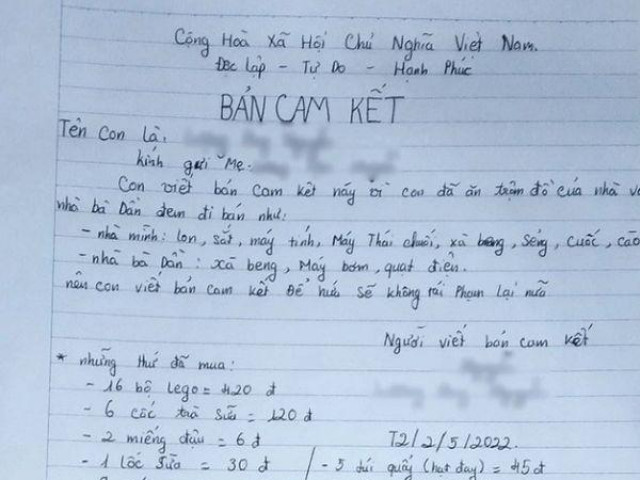 Cộng Hoà Xã Hội Chủ Nghĩa Việt Nam.
Độc lập - Tự Do - Hạnh Phúc
BẢN CAM KẾT
Tên Con là.
kính gửi Mẹ.
Con viết bản cam kết này vì con đã ăn trộm đồ của nhà và
nhà bà Dần đem đi bán như:
- nhà mình: lon, sắt, máy tính, Máy Thái chuối, xà beng, Sẻng, Cuốc, cào
- nhà bà Dần: xà beng, Máy bơm, quạt điện.
nên con viết bản cam kết Để hứa sẽ không tái Phạm lại nữa
Người viết bản cam kết
* những thứ đã mua:
- 16 bộ lego = 420 đ
- 6 cốc trà sữa = 120 đ
- 2 miếng đậu = 6 đ
T2/2/5/2022.
- 1 lốc sữa = 30 đ / - 5 túi quẩy (hạt đay) = 45 đ